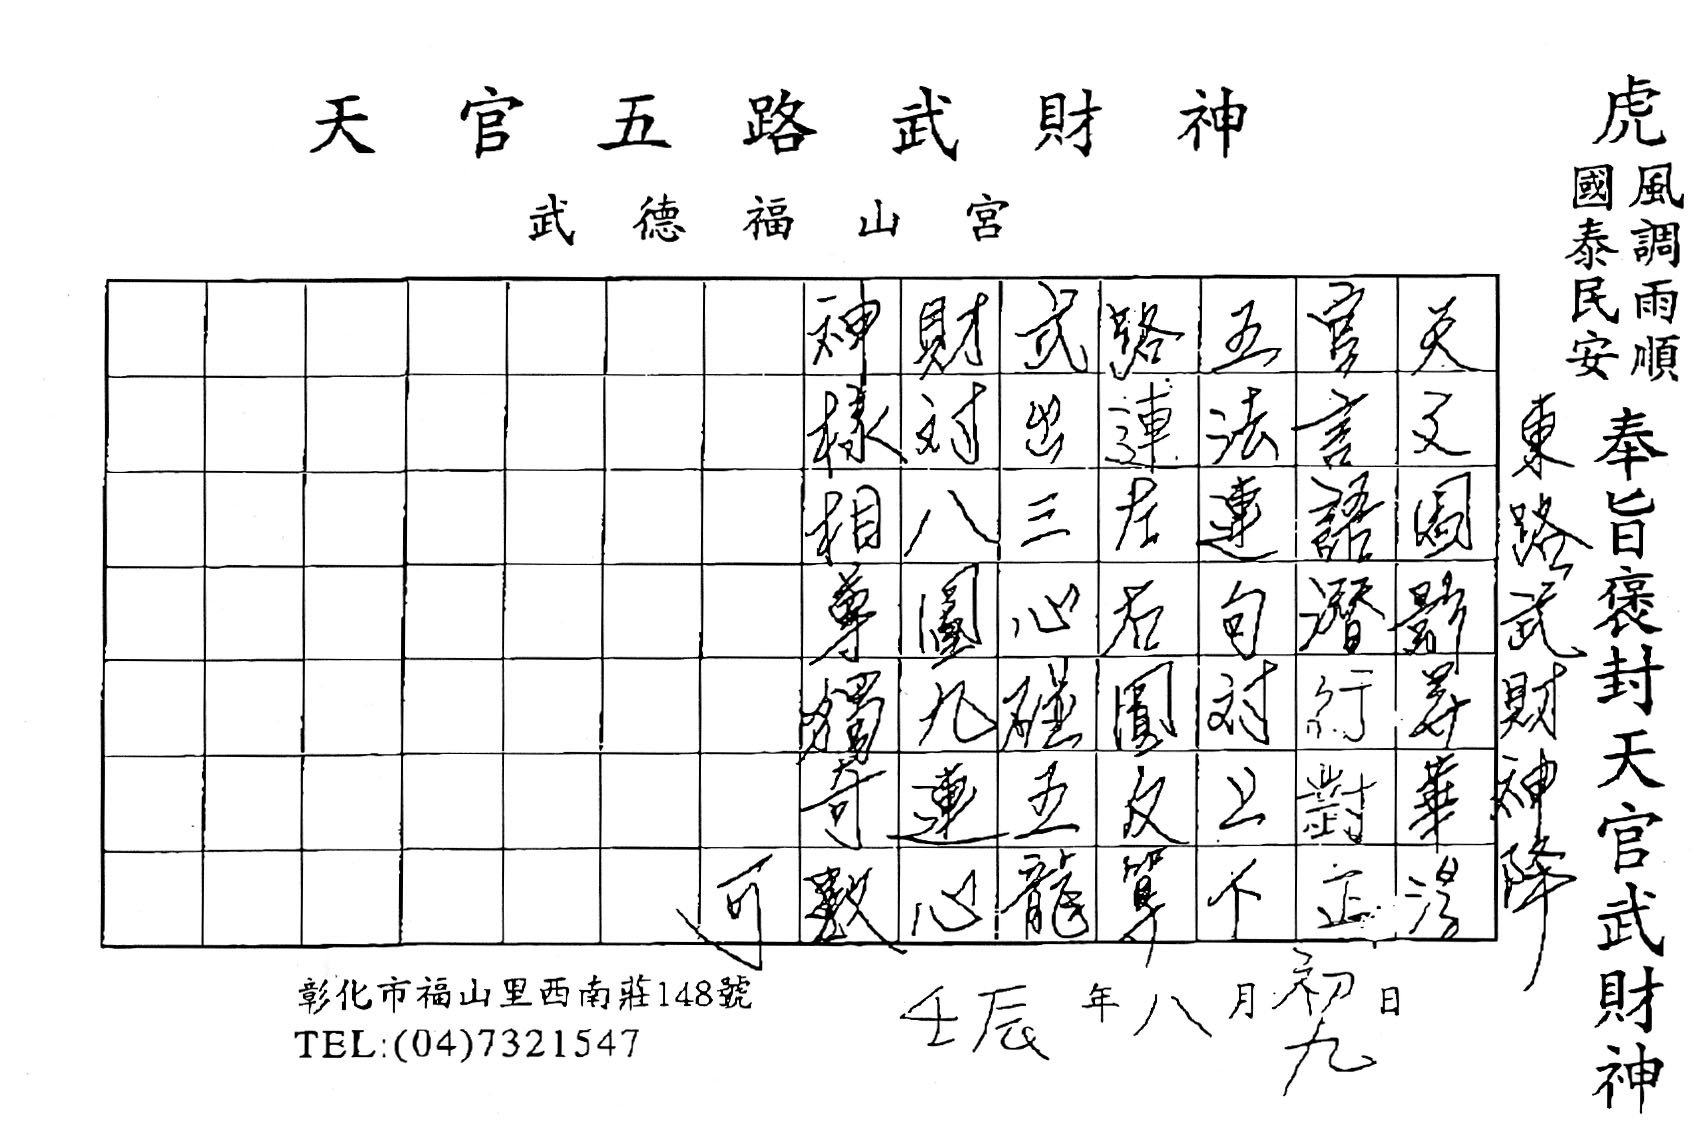 天官五路武財神
武德福山宮
虎
風調雨順
國泰民安
奉旨褒封天官武財神
東路武財神降
天文圖影算華
官言語潛行對正
五法連句対上下
路連左右圓文算
武出三心礎五龍
財対八圓九連心
神樣相尊獨奇數
可
壬辰年八月初九日
彰化市福山里西南莊148號
TEL:(04)7321547